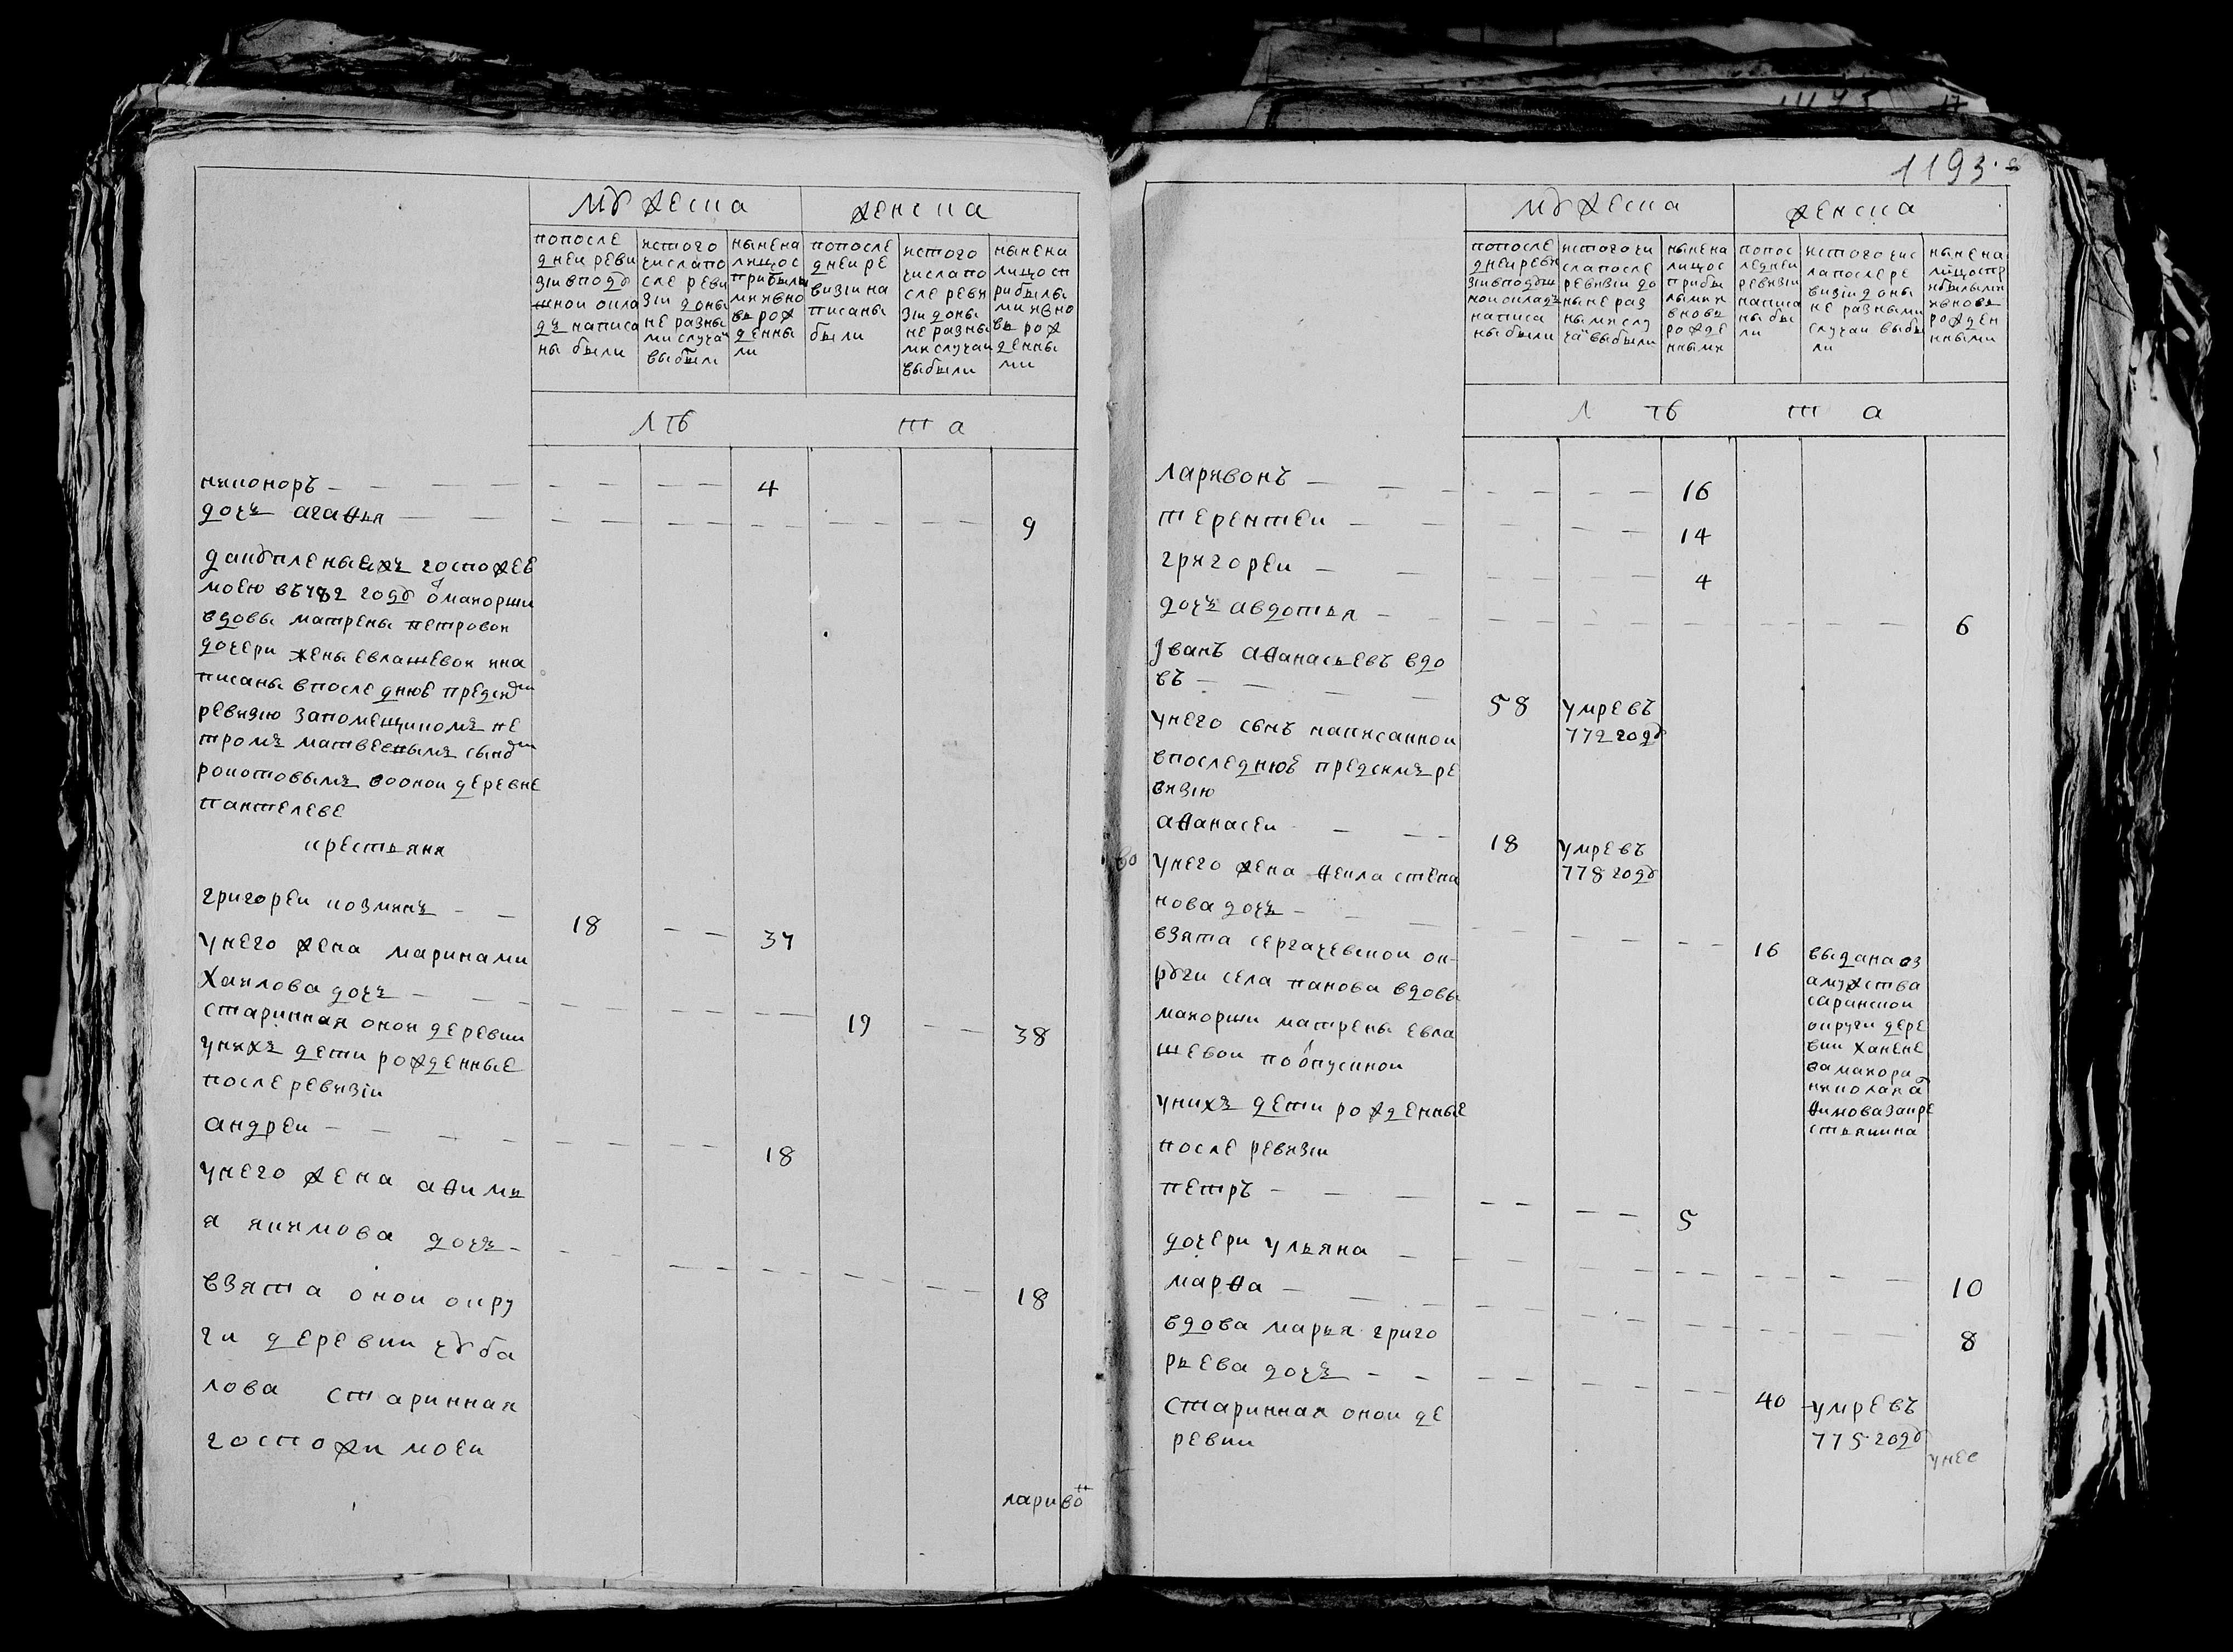 мужеска
женска
попосле
дней реви
зiи вподу
шной окла
дъ написа
ны были
истого
числапо
сле реви
зiи доны
не разны
ми случаи
выбыли
ныне на
лицо с
прибылы
ми и вно
вь рож
денны
ми
попосле
дней ре
визiи на
писаны
были
истого
числапо
сле реви
зiи доны
не разны
ми случаи
выбыли
ныне на
лицо сп
рибылы
ми и вно
вь рож
денны
ми
лѣ та
никоноръ — — — — — 4
дочь агафья — — — — — 9
дакупленые ихъ госпожее
моею въ 782 году о маиорши
вдовы матрены петровои
дочери жены евлашевои и на
писаны в последнюе пред сим
ревизию за помещикомъ пе
тромъ матвеевымъ сыном
рокотовымъ во онои деревне
пантелеве
крестьяня
григореи козминъ — — 18 — — 37
у него жена марина ми
хаилова дочь — — — — 19 — — 38
старинная онои деревни
у нихъ дети рожденные
после ревизiи
андреи — — — — — 18
у него жена афимь
я якимова дочь — — — — — 18
взята онои окру
ги деревни чуба
лова старинная
госпожи моеи
ларивон
1193.
мужеска
женска
попосле
дней реви
зiи вподуш
ной окладъ
написа
ны были
истого чи
сла после
ревизiи до
ныне раз
ными слу
чаи выбыли
ныне на
лицо с
прибы
лыми и
вновь
рожде
нными
попос
ледней
ревизiи
написа
ны бы
ли
истого чис
ла после ре
визiи доны
не разными
случаи выбы
ли
ныне на
лицо спр
ибылыми
и вновь
рожден
ными
л ѣ т а
ларивонъ — — — — — 16
терентеи — — — — — 14
григореи — — — — 4
дочь авдотья — — — — — 6
Iванъ афанасьевъ вдо
въ — — — — 58 умре въ
772 году
у него сынъ написаннои
в последнюе пред симъ ре
визiю
афанасеи — — — 18 умре въ
778 году
у него жена фекла степа
нова дочь — — — — — 16 выдана в з
амужства
саранскои
округи дере
вни ханене
ва маиора
николая а
фимова за кре
стьянина
взята сергачевскои ок-
руги села панова вдовы
маиорши матрены евла
шевои по отпускнои
у нихъ дети рожденные
после ревизiи
петръ — — — — — 5
дочери ульяна — — — — — 10
марфа — — — — — 8
вдова марья григо
рьева дочь — — — — — 40 умре въ
775 году
старинная онои де
ревни
у нее